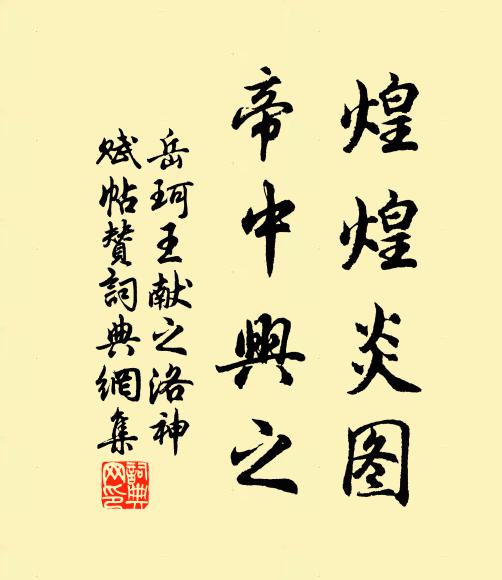 煌煌炎图
帝中興之
岳珂王献之洛神
赋帖赞詞典網集
詞典网印